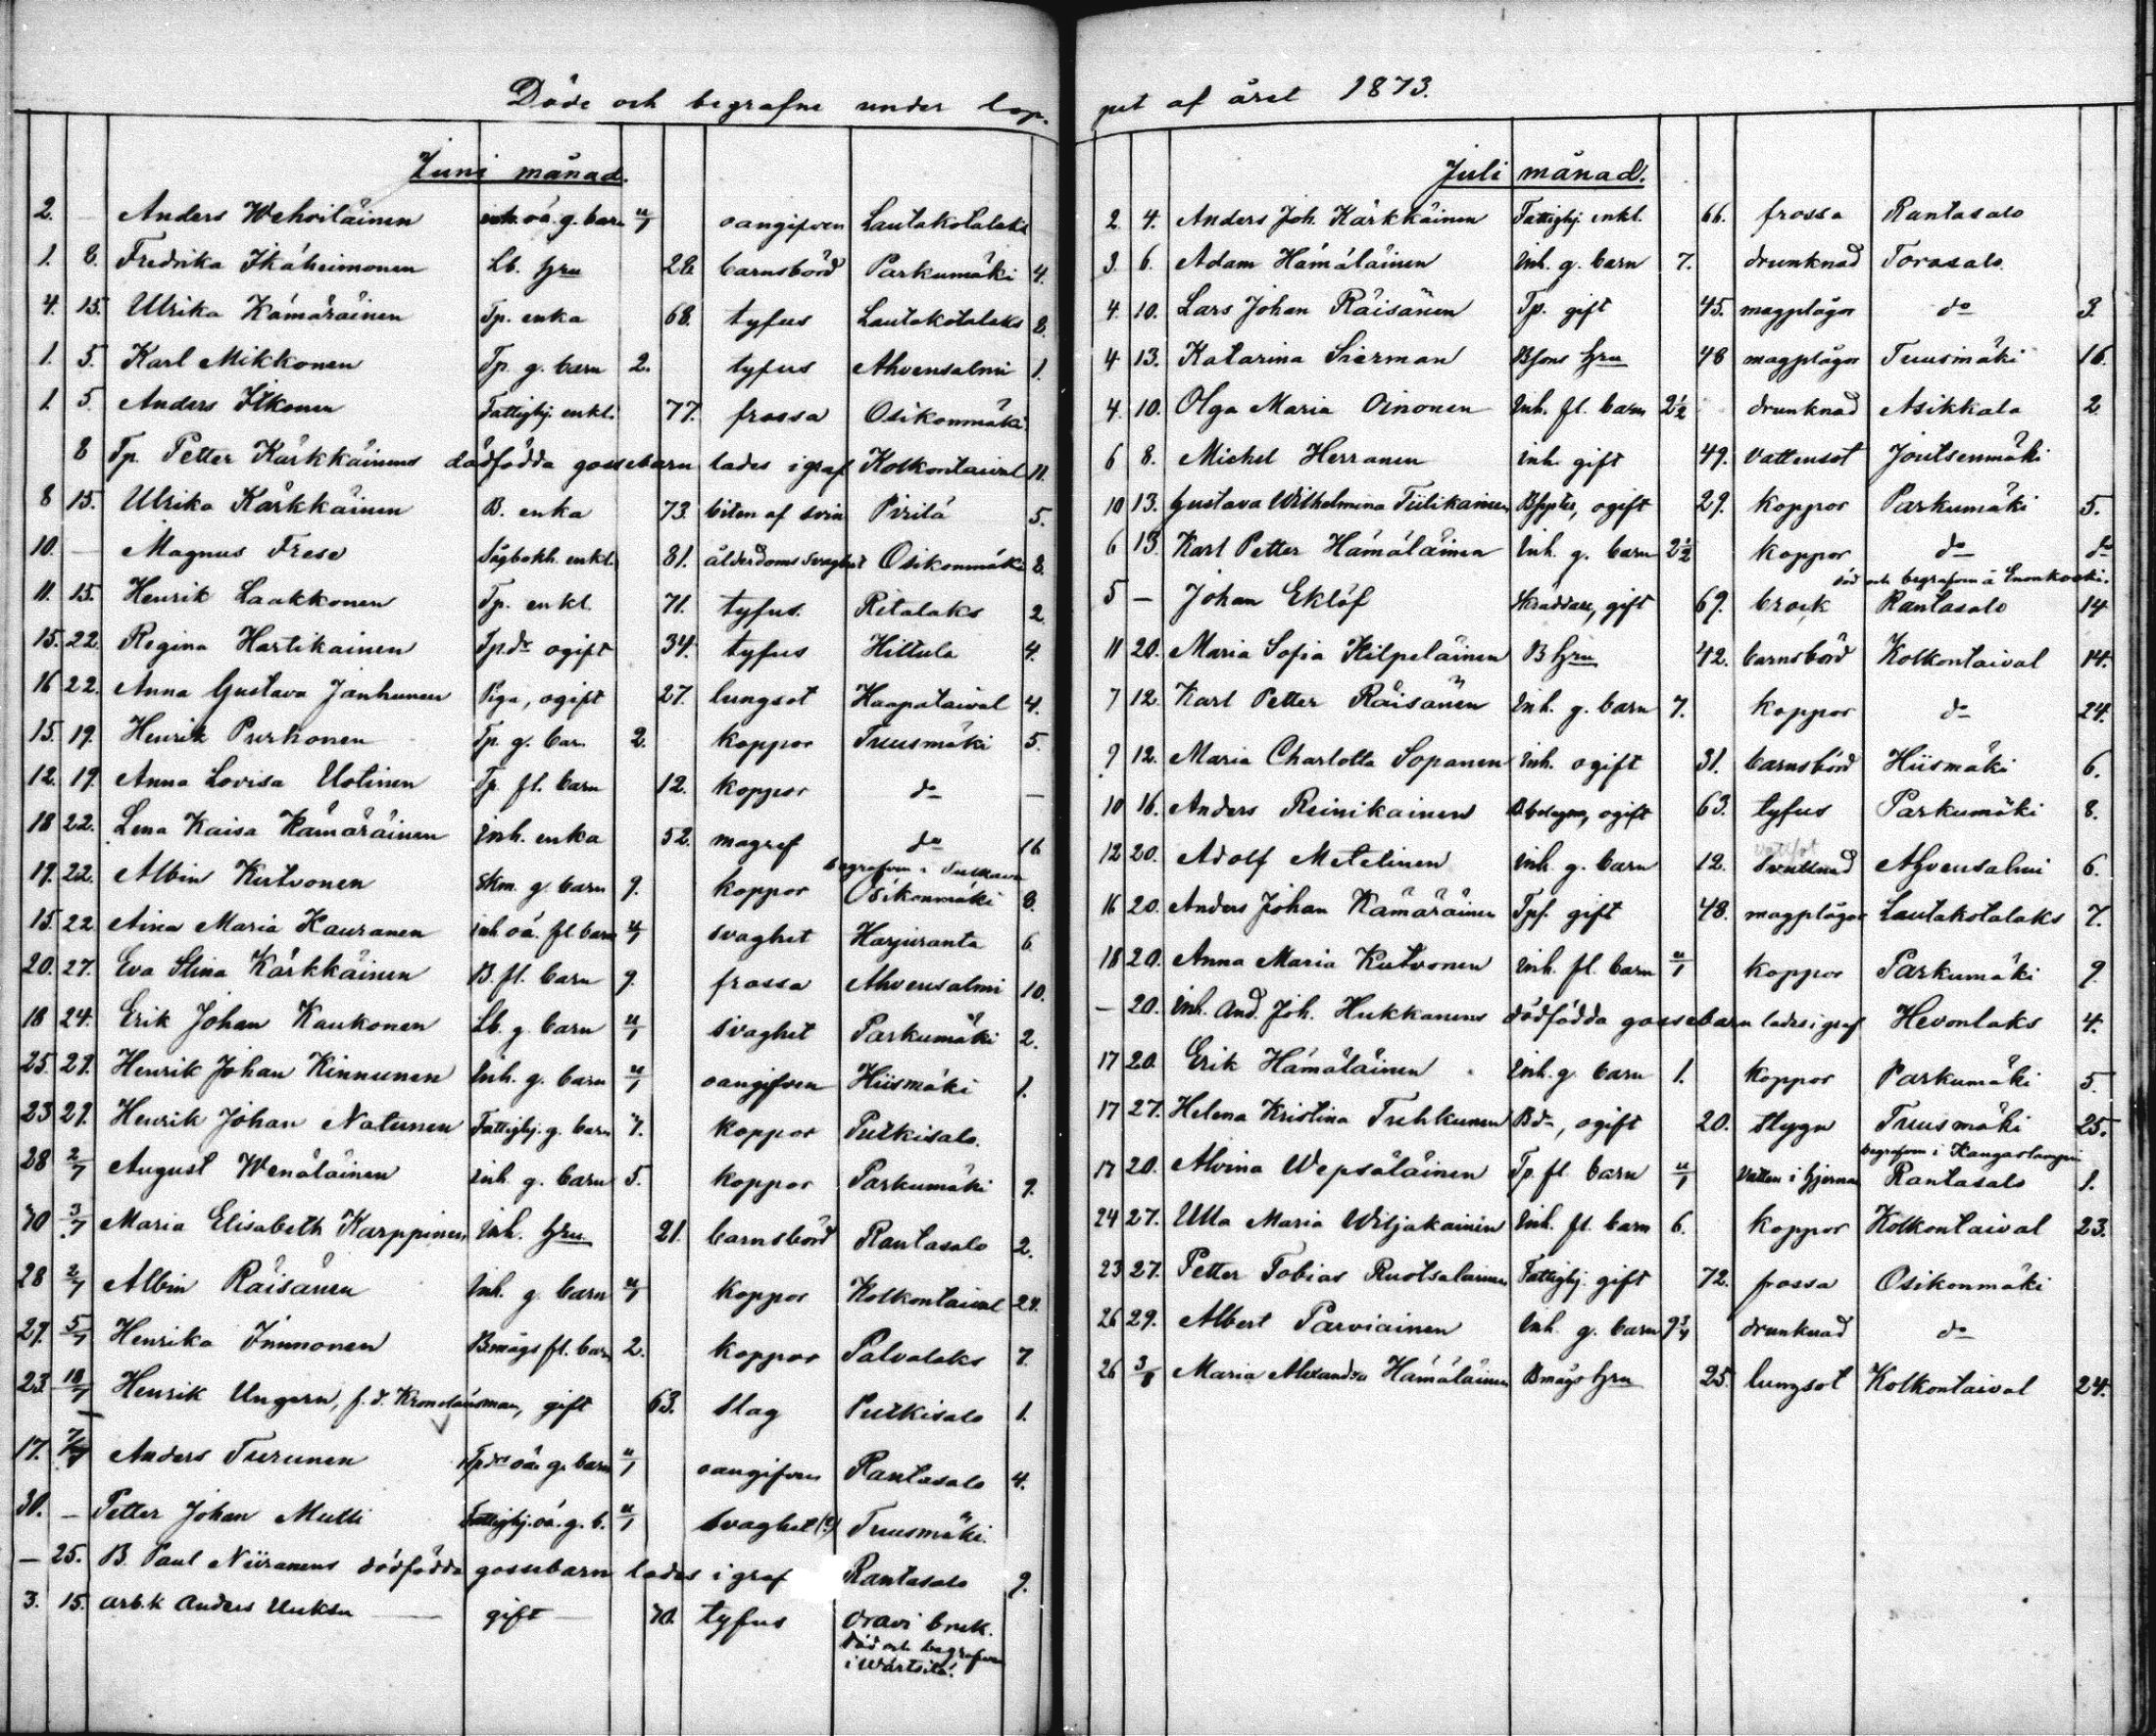 Döde och begrafne under lop-
Juni månad.
2. — Anders Wehviläinen inh. oä. g. barn u/1 oangifven Lautakotalaks
1. 8. Fredrika Ikäheimonen Lb. hru 28 barnsbörd Parkumäki 4.
4. 15. Ulrika Kämäräinen Tp. enka 68. tyfus Lautakotalaks 8.
1. 5. Karl Mikkonen Tp. g. barn 2. tyfus Ahvensalmi 1.
1. 5. Anders Itkonen Fattighj. enkl. 77. frossa Osikonmäki
8 Tp. Petter Kärkkäinens dödfödda gossebarn lades i graf Kolkontaival 11.
8 15. Ulrika Kärkkäinen B. enka 73. biten af svin Pirilä 5.
10. — Magnus Frese enkl. 81. ålderdoms svaghet Osikonmäki 8.
11. 15. Henrik Laakkonen Tp. enkl. 71. tyfus. Ritalaks 2.
15. 22. Regina Hartikainen Tp.dr ogift 34. tyfus Hittula 4.
16 22. Anna Gustava Janhunen Piga, ogift 27. lungsot Haapataival 4.
15. 19. Henrik Purhonen Tp. g. bar. 2. koppor Tuusmäki 5.
12. 19. Anna Lovisa Uotinen Tp. fl. barn 12. koppor do —
18 22. Lena Kaisa Kämäräinen Inh. enka 52. magref do 16
begrafven i Sulkava
19. 22. Albin Kutvonen Skm. g. barn 9. koppor Osikonmäki 8.
15. 22 Aina Maria Kauranen inh. oä. fl barn u/1 svaghet Harjuranta 6
20. 27. Eva Stina Kärkkäinen B. fl. barn 9. frossa Ahvensalmi 10.
18 24. Erik Johan Kaukonen Lb. g. barn u/1 svaghet Parkumäki 2.
25. 29. Henrik Johan Kinnunen Inh. g. barn u/1 oangifven Hiismäki 1.
23 29. Henrik Johan Natunen Fattighj. g. barn 7. koppor Putkisalo.
28 2/7 August Wenäläinen Inh. g. barn 5. koppor Parkumäki 9.
30 3/7 Maria Elisabeth Karppinen Inh. hru 21. barnsbörd Rantasalo 2.
28 2/7 Albin Räisänen Inh. g. barn u/1 koppor Kolkontaival 24.
29. 5/7 Henrika Immonen Bmågs fl. barn 2. koppor Palvalaks 7.
23 18/7 Henrik Ungern, f. d. Kronolänsman, gift 63. slag Putkisalo 1.
17. Anders Turunen oä. g. barn u/1 oangifven Rantasalo 4.
30. — Petter Johan Multi Fattighj. oä. g. b. u/1 svaghet (?) Tuusmäki.
— 25. B. Paul Niiranens dödfödda gossebarn lades i graf Rantasalo 9.
3. 15. arb.k Anders Uuksu — gift — 70. tyfus Oravi bruk.
död och begrafven
i Wärtsilä.
pet af året 1873.
Juli månad.
2. 4. Anders Joh. Kärkkäinen Fattighj. enkl. 66. frossa Rantasalo
3. 6. Adam Hämäläinen Inh. g. barn 7. drunknad Torasalo.
4. 10. Lars Johan Räisänen Tp. gift 45. magplågor do 3.
4 13. Katarina Sierman Bsons hru 48 magplågor Tuusmäki 16.
4. 10. Olga Maria Oinonen Inh. fl. barn 2½ drunknad Asikkala 2.
6 8. Michel Herranen Inh. gift 49. vattensot Joutsenmäki
10 13. Gustava Wilhelmina Tiilikainen ogift 29. koppor Parkumäki 5.
6 13. Karl Petter Hämäläinen Inh. g. barn 2½ koppor do do
död och begrafven i Enonkoski.
5 — Johan Eklöf Skräddare, gift 69. bråck Rantasalo 14
11 20. Maria Sofia Kilpeläinen B hru 42. barnsbörd Kolkontaival 14.
7 12. Karl Petter Räisänen Inh. g. barn 7. koppor do 24.
9 12. Maria Charlotta Sopanen Inh. ogift 31. barnsbörd Hiismäki 6.
10 16. Anders Reinikainen ogift 63. tyfus Parkumäki 8.
12 20. Adolf Metelinen Inh. g. barn 12. Ahvensalmi 6.
16 20. Anders Johan Kämäräinen Tpf. gift 48. magplågor Lautakotalaks 7.
18 20. Anna Maria Kutvonen Inh. fl. barn u/1 koppor Parkumäki 9.
— 20. Inh. And. Joh. Hukkanens dödfödda gossebarn lades i graf Hevonlaks 4.
17 20. Erik Hämäläinen Inh. g. barn 1. koppor Parkumäki 5.
17 27. Helena Kristina Tuhkunen Bdr, ogift 20. stygn Tuusmäki 25.
begrafven i Kangaslampi
17 20. Alvina Wepsäläinen Tp. fl. barn u/1 vatten i hjernan Rantasalo 1.
24 27. Ulla Maria Wiljakainen Inh. fl. barn 6. koppor Kolkontaival 23.
23 27. Petter Tobias Ruotsalainen Fattighj. gift 72. frossa Osikonmäki
26 29. Albert Parviainen Inh. g. barn 9¾ drunknad do
26 3/8 Maria Alexandra Hämäläinen Bmågs hru 25. lungsot Kolkontaival 24.